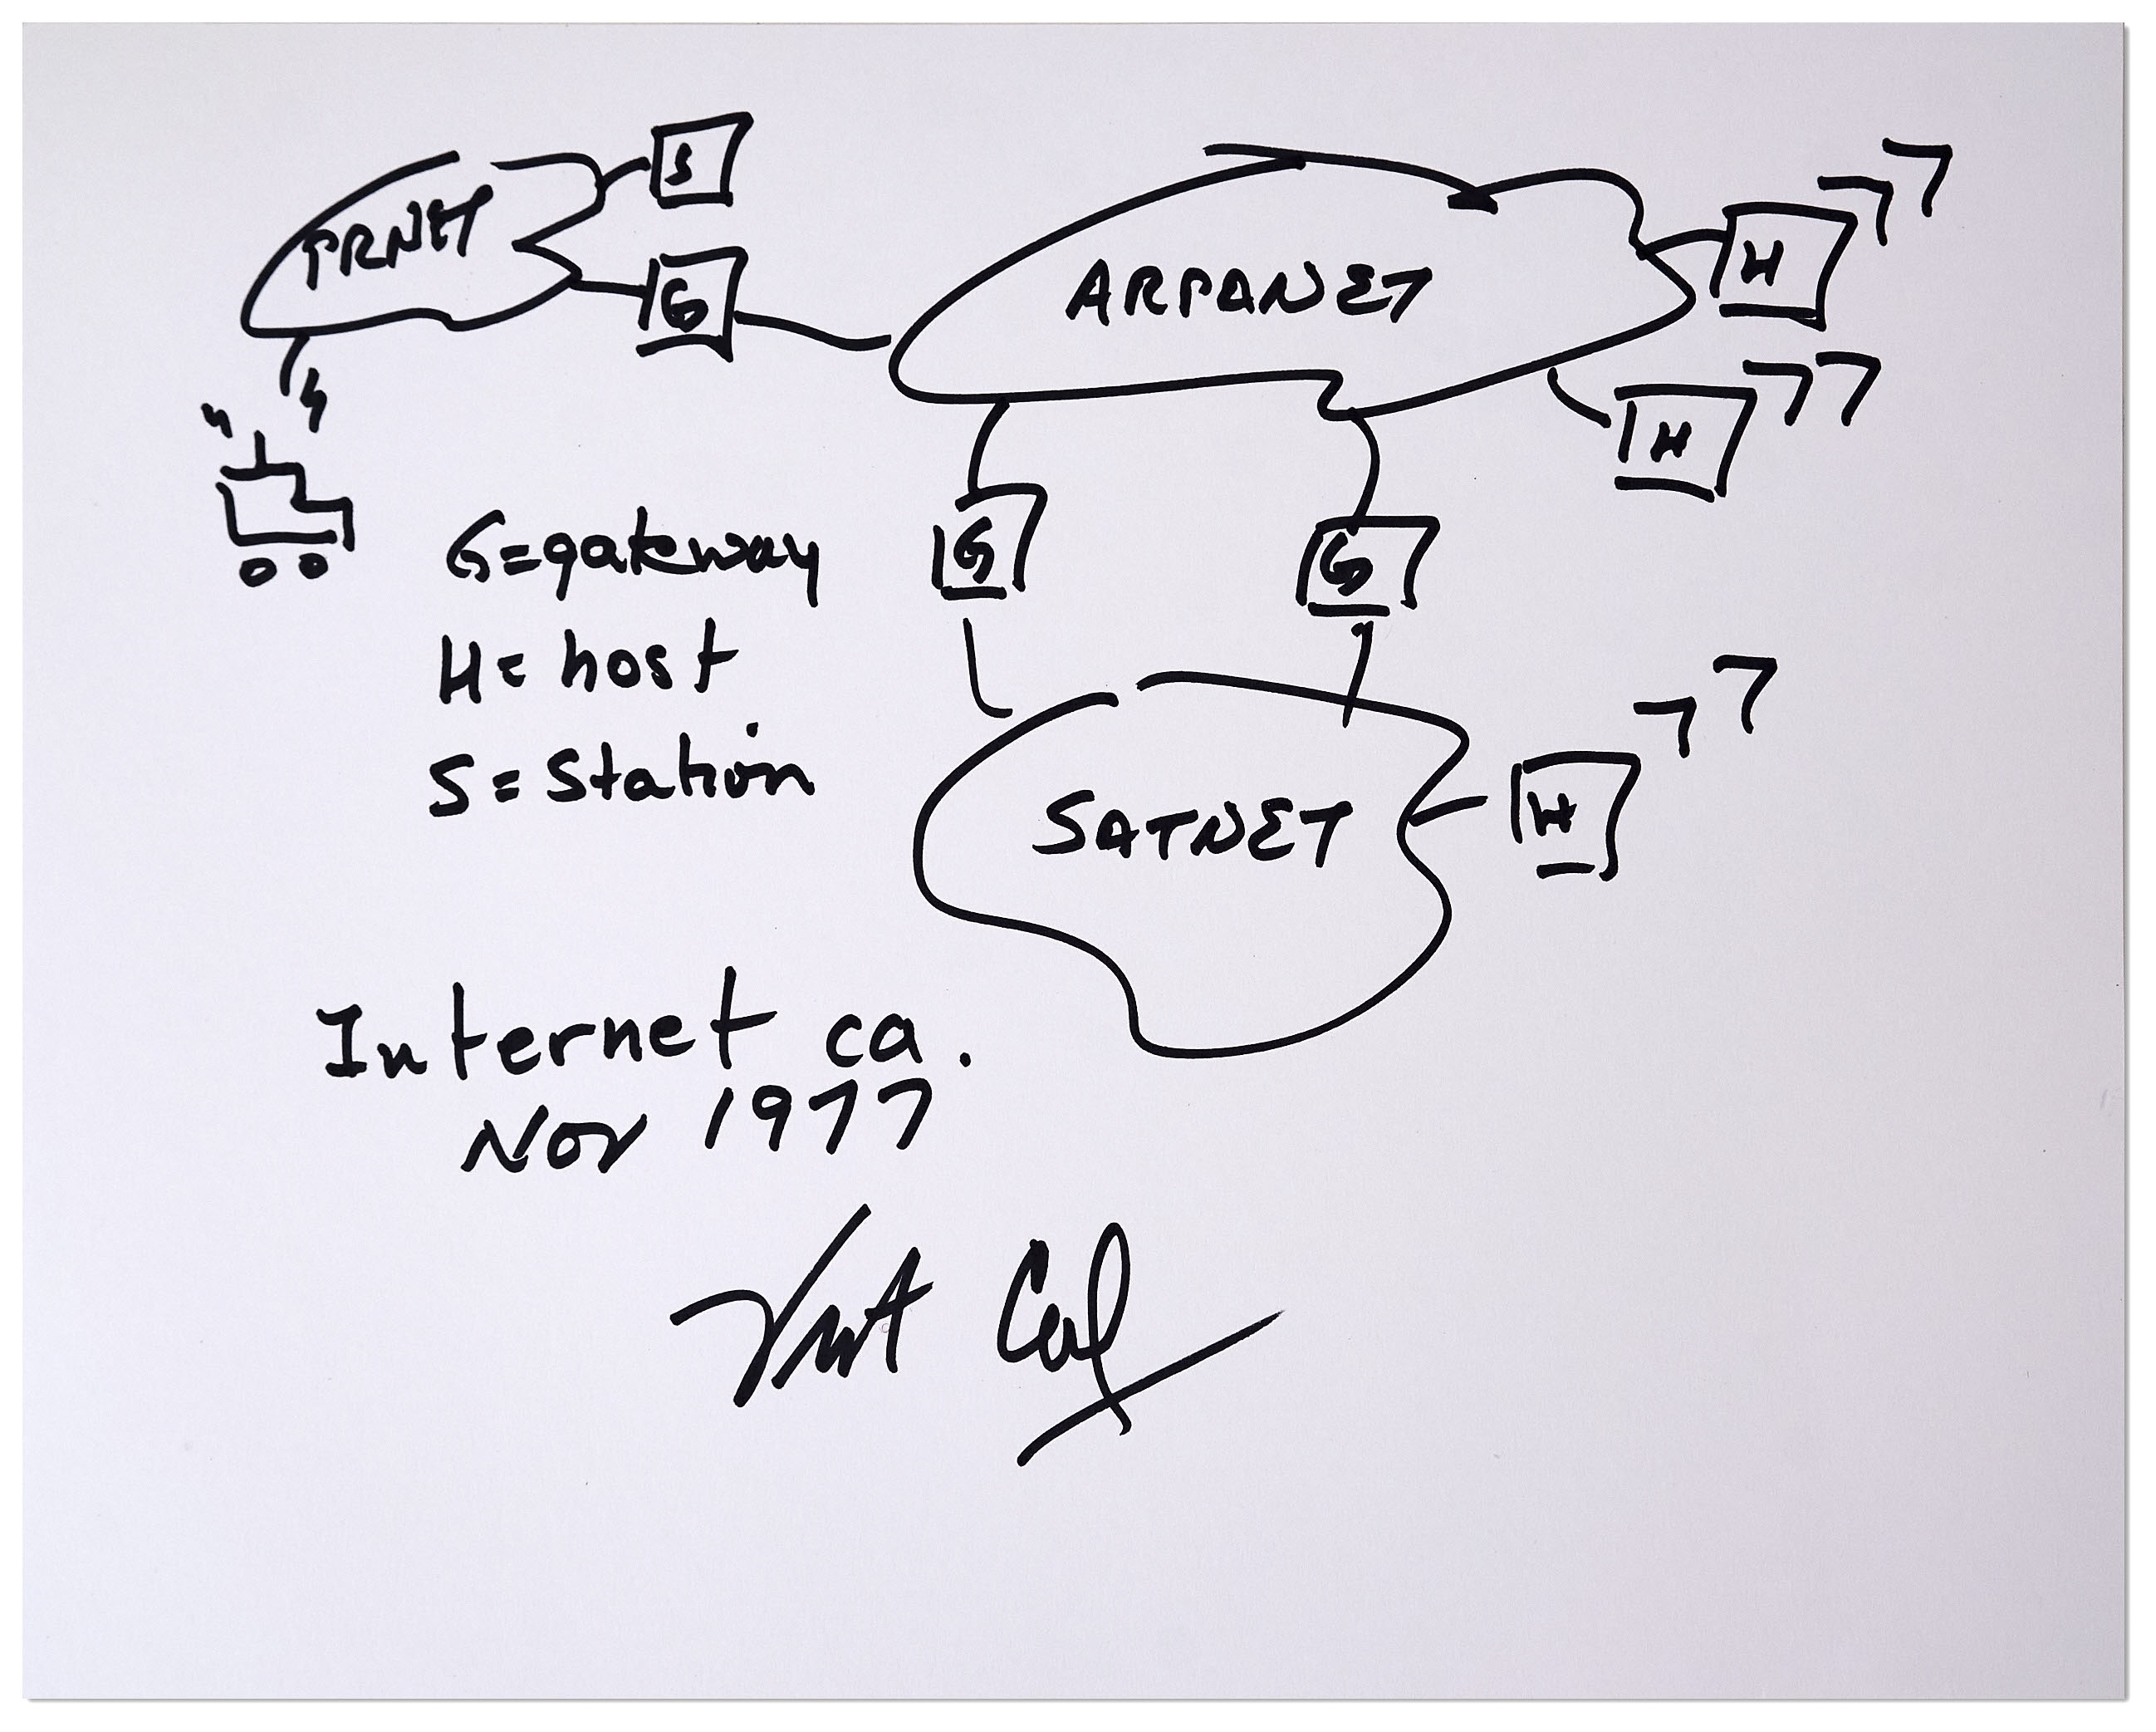 PRNET
S
G
ARPANET
H
H
G
G
G=gateway
H= host
S= Station
SATNET
H
Internet ca.
Nov 1977
Vint Cerf